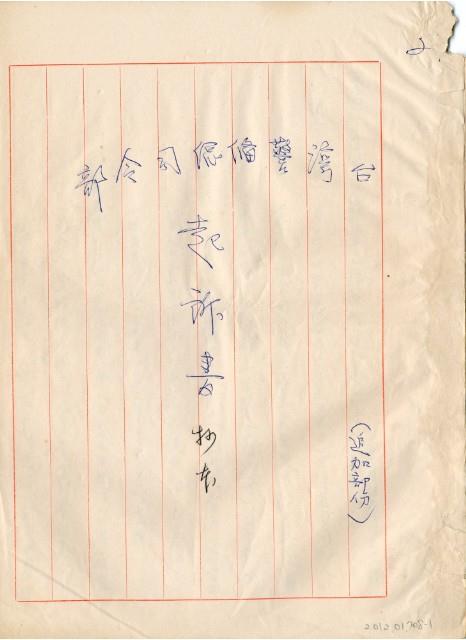 2
台湾警備總司令部
起訴書
抄本
(追加部份)